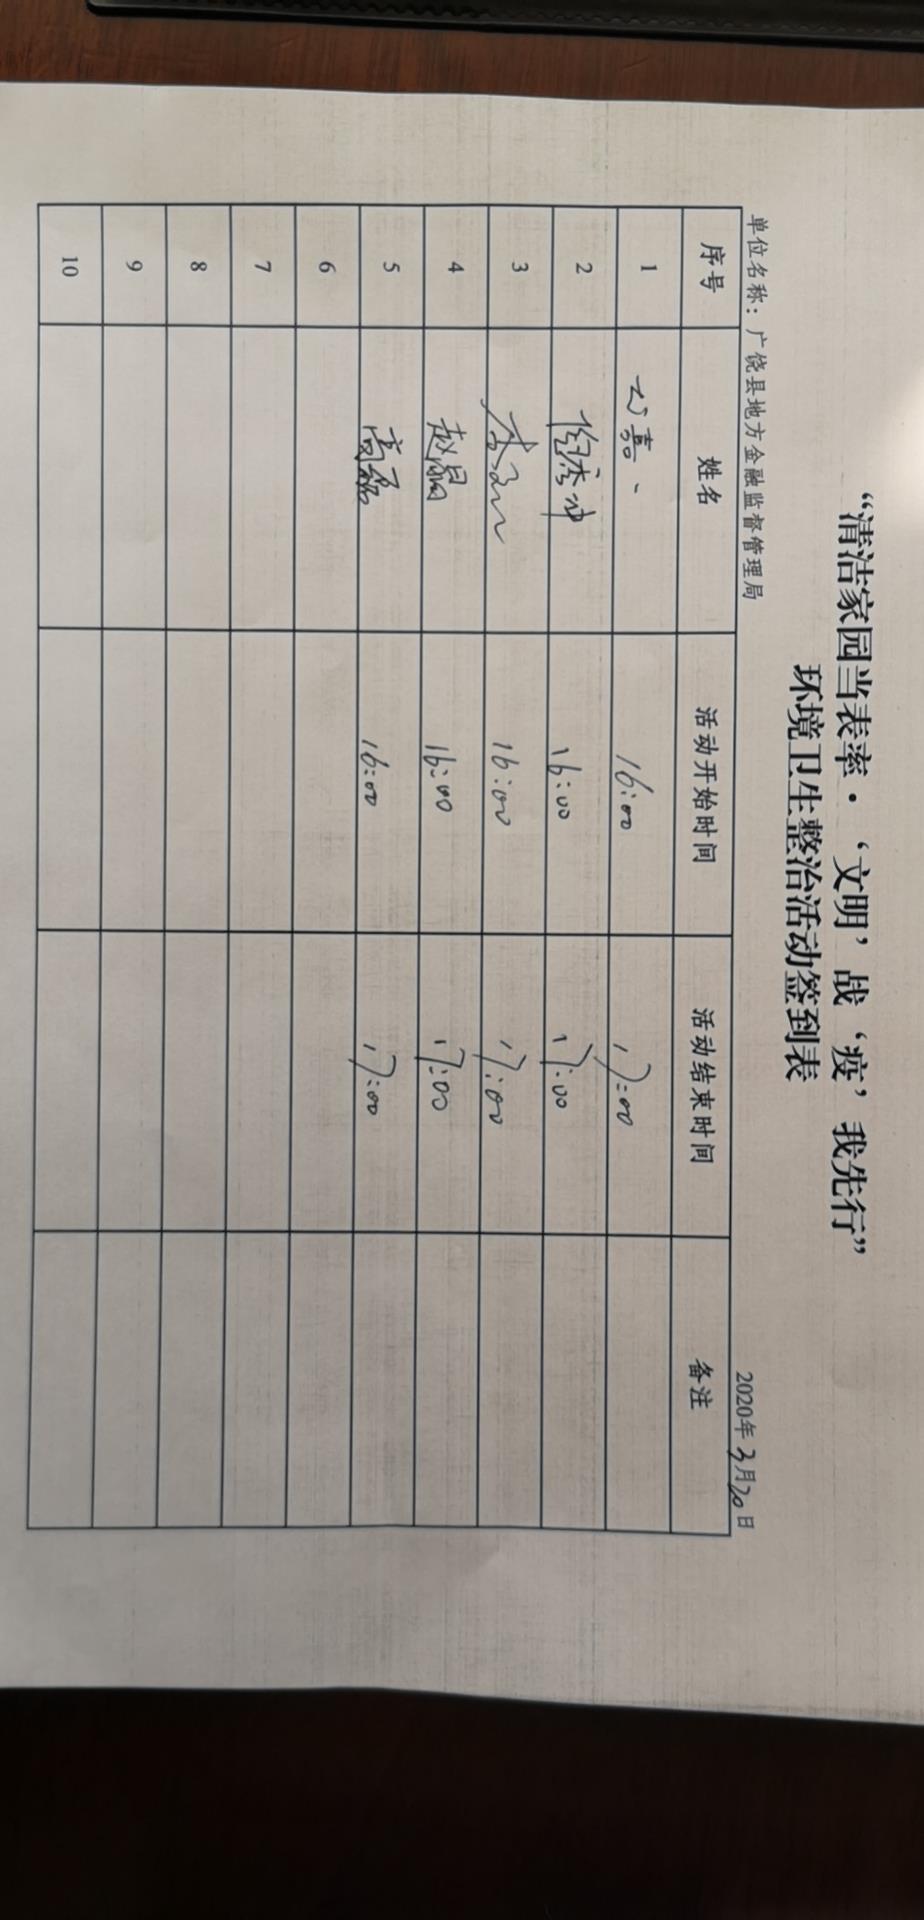 “清洁家园当表率·‘文明’战‘疫’我先行”
环境卫生整治活动签到表
单位名称：广饶县地方金融监督管理局 2020年3月20日
序号 姓名 活动开始时间 活动结束时间 备注
1 16:00 17:00
2 16:00 17:00
3 16:00 17:00
4 赵晶 16:00 17:00
5 高磊 16:00 17:00
6
7
8
9
10